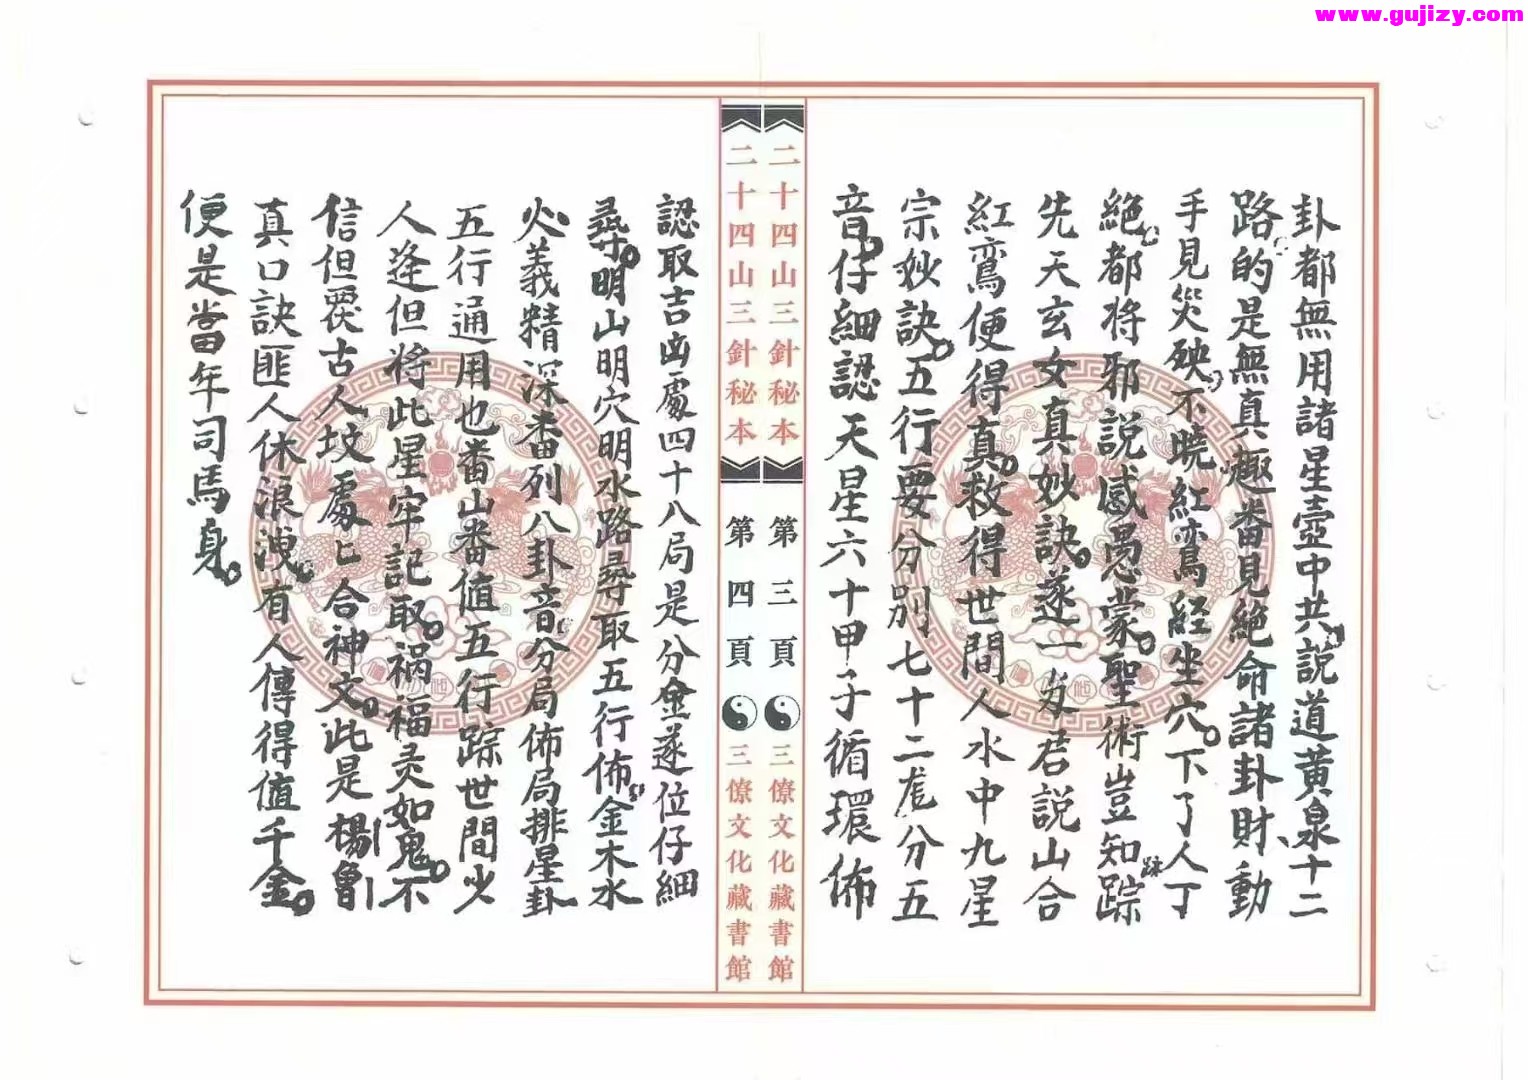 www.gujizy.com
卦都無用諸星壺中共說道黃泉十二
路的是無真趣番見絕命諸卦財動
手見災殃不曉紅鸞經坐穴下了人丁
絕都將邪說惑愚蒙聖術豈知踪
跡
先天玄女真妙訣遂一友君説山合
紅鸞便得真救得世間人水中九星
宗妙訣五行要分別七十二龍分五
音仔細認天星六十甲子循環佈
二十四山三針秘本
第三頁
三僚文化藏書館
二十四山三針秘本
第四頁
三僚文化藏書館
認取吉凶處四十八局是分金遂位仔細
尋明山明穴明水路尋取五行佈金木水
火義精深番列八卦音分局佈局排星卦
五行通用也番山番值五行踪世間少
人逢但將此星牢記取禍福灵如鬼不
信但覆古人坟處匕合神文此是楊曾
真口訣匪人休浪洩有人傳得值千金
便是當年司馬身